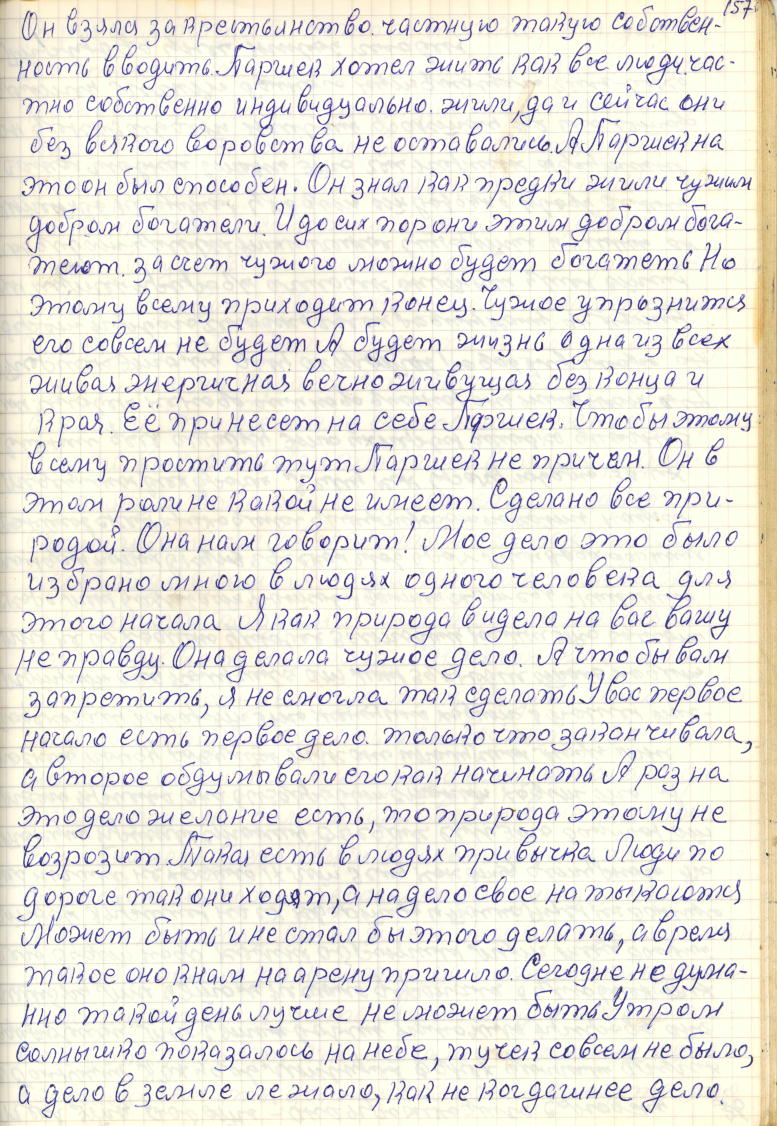 157
Он взялся за крестьинство. частную такую собствен-
ность вводить. Паршек хотел жить как все люди, час-
тно собственно индивидуально. жили, да и сейчас они
без всякого воровства не оставались. А Паршек на
это он был способен. Он знал как предки жили чужим
добром богатели. И до сих пор они этим добром бога-
теют. за счет чужого можно будет богатеть Но
этому всему приходит конец. Чужое упрызнится
его совсем не будет А будет жизнь одна из всех
живая энергичная вечноживущая без конца и
края. Её принесет на себе Паршек. Чтобы этому
всему простить тут Паршек не причем. Он в
этом роли не какой не имеет. Сделано все при-
родой. Она нам говорит! Мое дело это было
избрано мною в людях одного человека для
этого начала Я как природа видела на вас вашу
не правду. Она делала чужое дело. А что бы вам
запретить, я не смогла так сделать У вас первое
начало есть первое дело. только что заканчивала,
а второе обдумывали его как начинать А раз на
это дело желание есть, то природа этому не
возрозит Такая есть в людях привычка Люди по
дороге так они ходят, а на дело свое натыкаются
Может быть и не стал бы этого делать, а время
такое оно к нам на арену пришло. Сегодне не дума-
нно такой день лучше не может быть Утром
солнышко показалось на небе, тучек совсем не было,
а дело в земле лежало, как не когдашнее дело.